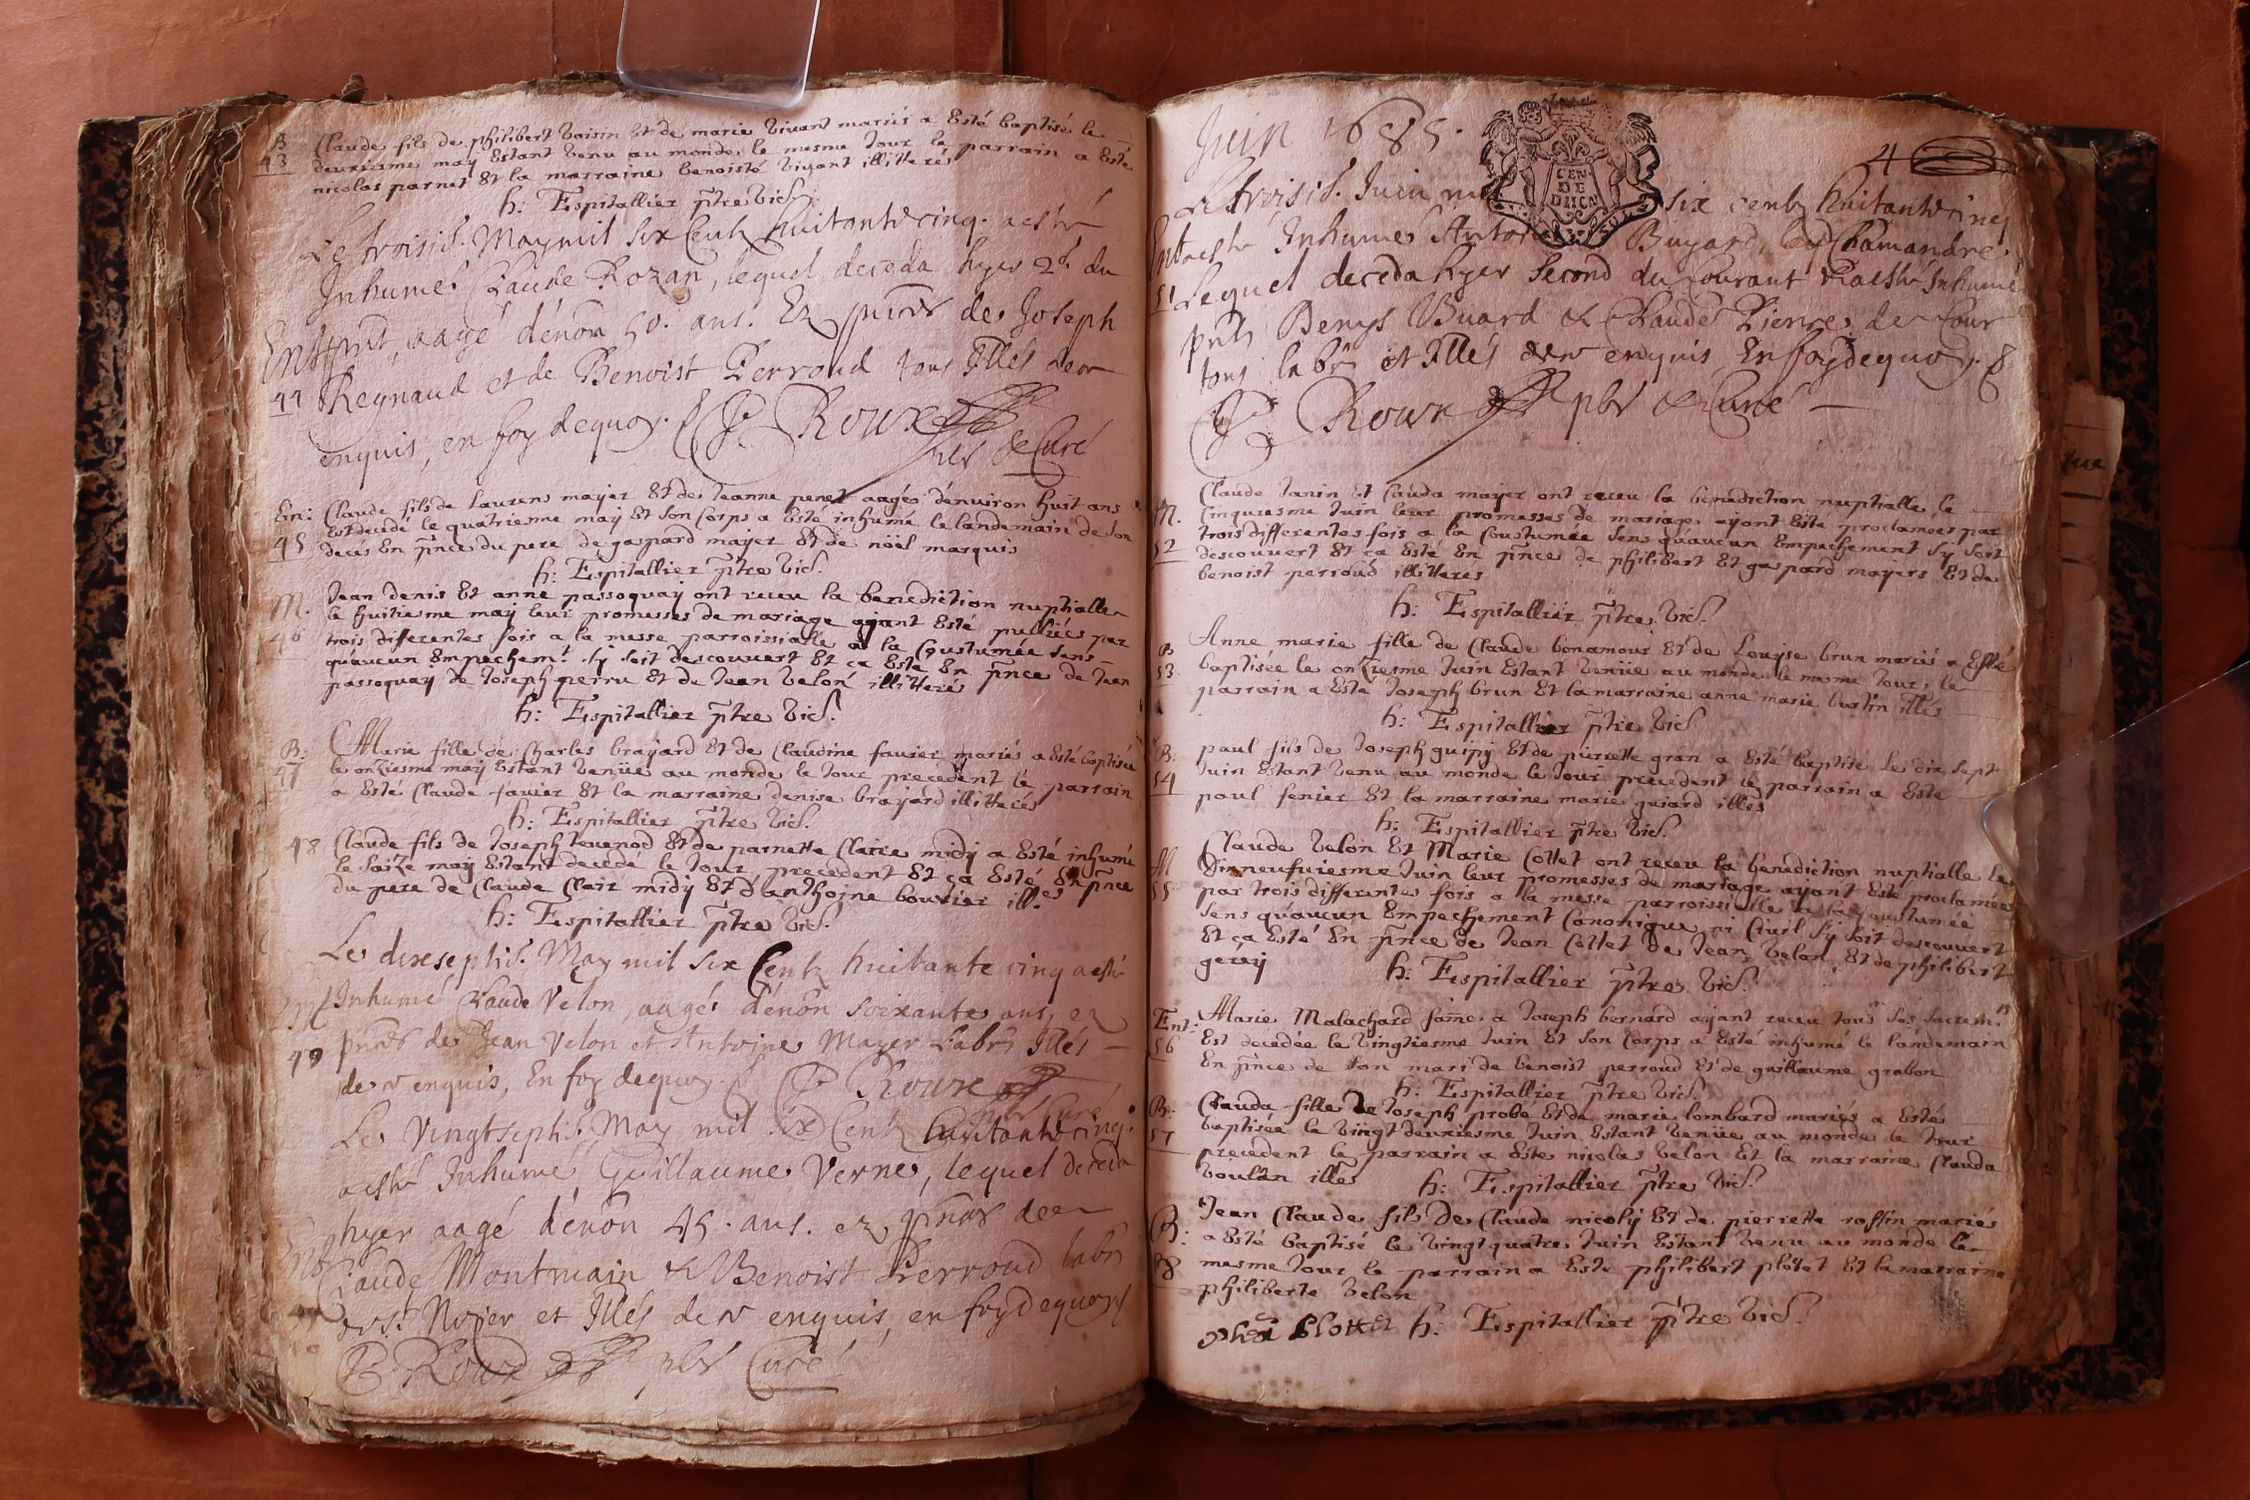 B
43
Claude fils de philibert voisin Et de marie vivant mariés a Esté baptisé le
deuxiesme may Estant venu au monde le mesme Jour le parrain a Esté
nicolas parnet Et la marraine benoiste vivant illitterés
h: Espitallier p̃tre vic̃.
Le troisiẽ. May mil six Centz huitante cinq. a esté
Inhumé Claude Rozan, lequel deceda hyer 2d. du
aagé d'enõn 50. ans. Ez pñces de Joseph
44
Regnaud et de Benoist Perroud tous Jllés de ce
enquis, en foy dequoy. Roux
pbr & Curé
En:
45
Claude fils de Laurens mayer Et de Jeanne penet aagés d'environ huit ans
Est decedé le quatriesme may Et son Corps a Esté inhumé le landemain de son
decés En p̃nce du pere de gaspard mayer Et de nöel marquis
h: Espitallier p̃tre vic̃.
M.
46
Jean denis Et anne passoquay ont receu la benediction nuptialle
le huitiesme may leur promesses de mariage ayant Esté publiées par
trois differentes fois a la messe parroissialle a la Coustumée sens
qu'aucun Empechem.t s'y soit descouvert Et ça Esté En p̃nce de Jean
passoquay de Joseph perru Et de Jean velon illitterés
h: Espitallier p̃tre vic̃.
B:
47
Marie fille de Charles brayard Et de Claudine favier mariés a Esté baptisée
le onziesme may Estant venüe au monde le Jour precedent le parrain
a Esté Claude favier Et la marraine denise brayard illitterés
h: Espitallier p̃tre vic̃.
48
Claude fils de Joseph tevenod Et de parnette Claire midy a Esté inhumé
le saize may Estant decedé le Jour precedent Et ça Esté En p̃nce
du pere de Claude Clair midy Et d'anthoine bouvier ill.es
h: Espitallier p̃tre vic̃.
Le dixseptiẽ. May mil six Centz huitante cinq a esté
Inhumé Claude Velon, aagé d'enõn soixante ans, ez
49
pñces de Jean Velon et Antoine Mayer Labrs Jllés
de ce enquis, En foy dequoy. Roux
pbr Curé
Le Vingtseptiẽ. May mil six Centz huitante cinq.
a esté Inhumé Guillaume Verne, lequel deceda
hyer aagé d'enõn 45. ans. ez pñces de
Claude Montmain & Benoist Perroud labrs
Jllés de ce enquis, en foy dequoy
Roux pbr Curé
Juin 1685.
4
CEN
DE
DIJON
Le troisiẽ. Juin mil six centz huitante cinq
a esté Inhumé Buyard, de Chamandre,
51
Lequel deceda hyer second du Courant & a esté Inhumé
pñts Denys Buard & Claude Pierre de Cour
tous labrs et Jllés de ce enquis En foy dequoy.
Roux pbr & Curé
M.
52
Claude Janin Et Clauda mayer ont receu la benediction nuptialle le
cinquiesme Juin leur promesses de mariage ayant Esté proclamées par
trois differentes fois a la Coustumée sens qu'aucun Empechement s'y soit
descouvert Et ça Esté En p̃nce de philibert Et gaspard mayers Et de
benoist perroud illitterés
h: Espitallier p̃tre vic̃.
B
53
Anne marie fille de Claude bonamour Et de Louyse brun mariés a Esté
baptisée le onziesme Juin Estant venüe au monde le mesme Jour, le
parrain a Esté Joseph brun Et la marraine anne marie bustin illés
h: Espitallier p̃tre vic̃
B:
54
paul fils de Joseph guipy Et de pierrette gran a Esté baptisé le dix sept
Juin Estant venu au monde le Jour precedent le parrain a Esté
paul fenier Et la marraine marie guiard illés
h: Espitallier p̃tre vic̃.
M
55
Claude velon Et Marie Cottet ont receu la benediction nuptialle le
Dixneufviesme Juin leur promesses de mariage ayant Esté proclamées
par trois differentes fois a la messe parroissialle a la Coustumée
sens qu'aucun Empechement Canonique ni Civil s'y soit descouvert
Et ça Esté En p̃nce de Jean Cottet de Jean velon, Et de philibert
gevey
h: Espitallier p̃tre vic̃.
Ent:
56
Marie Malachard fam̃e a Joseph bernard ayant receu tous ses sacrem.ts
Est decedée le vingtiesme Juin Et son Corps a Esté inhumé le landemain
En p̃nce de son mari de benoist perroud Et de guillaume grabon
h: Espitallier p̃tre vic̃.
B:
57
Clauda fille de Joseph probé Et de marie lombard mariés a Esté
baptisée le vingt deuxiesme Juin Estant venüe au monde le Jour
precedent le parrain a Esté nicolas velon Et la marraine Clauda
voulan illés
h: Espitallier p̃tre vic̃.
B:
58
Jean Claude fils de Claude nicoly Et de pierrette roffin mariés
a Esté baptisé le vingt quatre Juin Estant venu au monde le
mesme Jour le parrain a Esté philibert plotet Et la marraine
philiberte velon
h: Espitallier p̃tre vic̃.